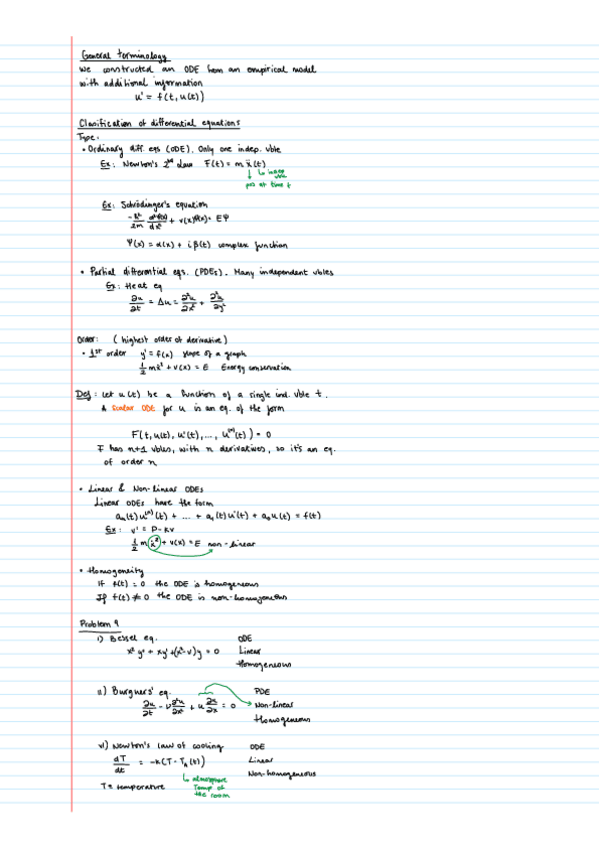 General terminology
We constructed an ODE from an empirical model
with additional information
u' = f(t, u(t))
Clasification of differential equations
Type:
• Ordinary diff. eqs (ODE). Only one indep. vble
Ex: Newton's 2nd Law F(t) = m ẍ(t)
pos at time t
Ex: Schrödinger's equation
-ħ²/2m d²Ψ(x)/dx² + V(x)Ψ(x) = EΨ
Ψ(x) = α(x) + i β(t) complex function
• Partial differential eqs. (PDEs). Many independent vbles
Ex: Heat eq
∂u/∂t = Δu = ∂²u/∂x² + ∂²u/∂y²
Order: (highest order of derivative)
• 1st order y' = f(x) slope of a graph
1/2 mẋ² + V(x) = E Energy conservation
Def: Let u(t) be a function of a single ind. vble t.
A scalar ODE for u is an eq. of the form
F(t, u(t), u'(t), ..., u⁽ⁿ⁾(t)) = 0
F has n+1 vbles, with n derivatives, so it's an eq.
of order n
• Linear & Non-linear ODEs
Linear ODEs have the form
aₙ(t)u⁽ⁿ⁾(t) + ... + a₁(t)u'(t) + a₀u(t) = f(t)
Ex: v' = P - Kv
1/2 mẋ² + V(x) = E non-linear
• Homogeneity
If f(t) = 0 the ODE is homogeneous
If f(t) ≠ 0 the ODE is non-homogeneous
Problem 9
i) Bessel eq. ODE
x² y'' + xy' + (x²-v)y = 0 Linear
Homogeneous
ii) Burguers' eq. PDE
∂u/∂t - v ∂²u/∂x² + u ∂u/∂x = 0 Non-linear
Homogeneous
vi) Newton's law of cooling ODE
dT/dt = -K(T - Tₐ(t)) Linear
Non-homogeneous
T ≡ temperature
atmosphere
Temp of
the room